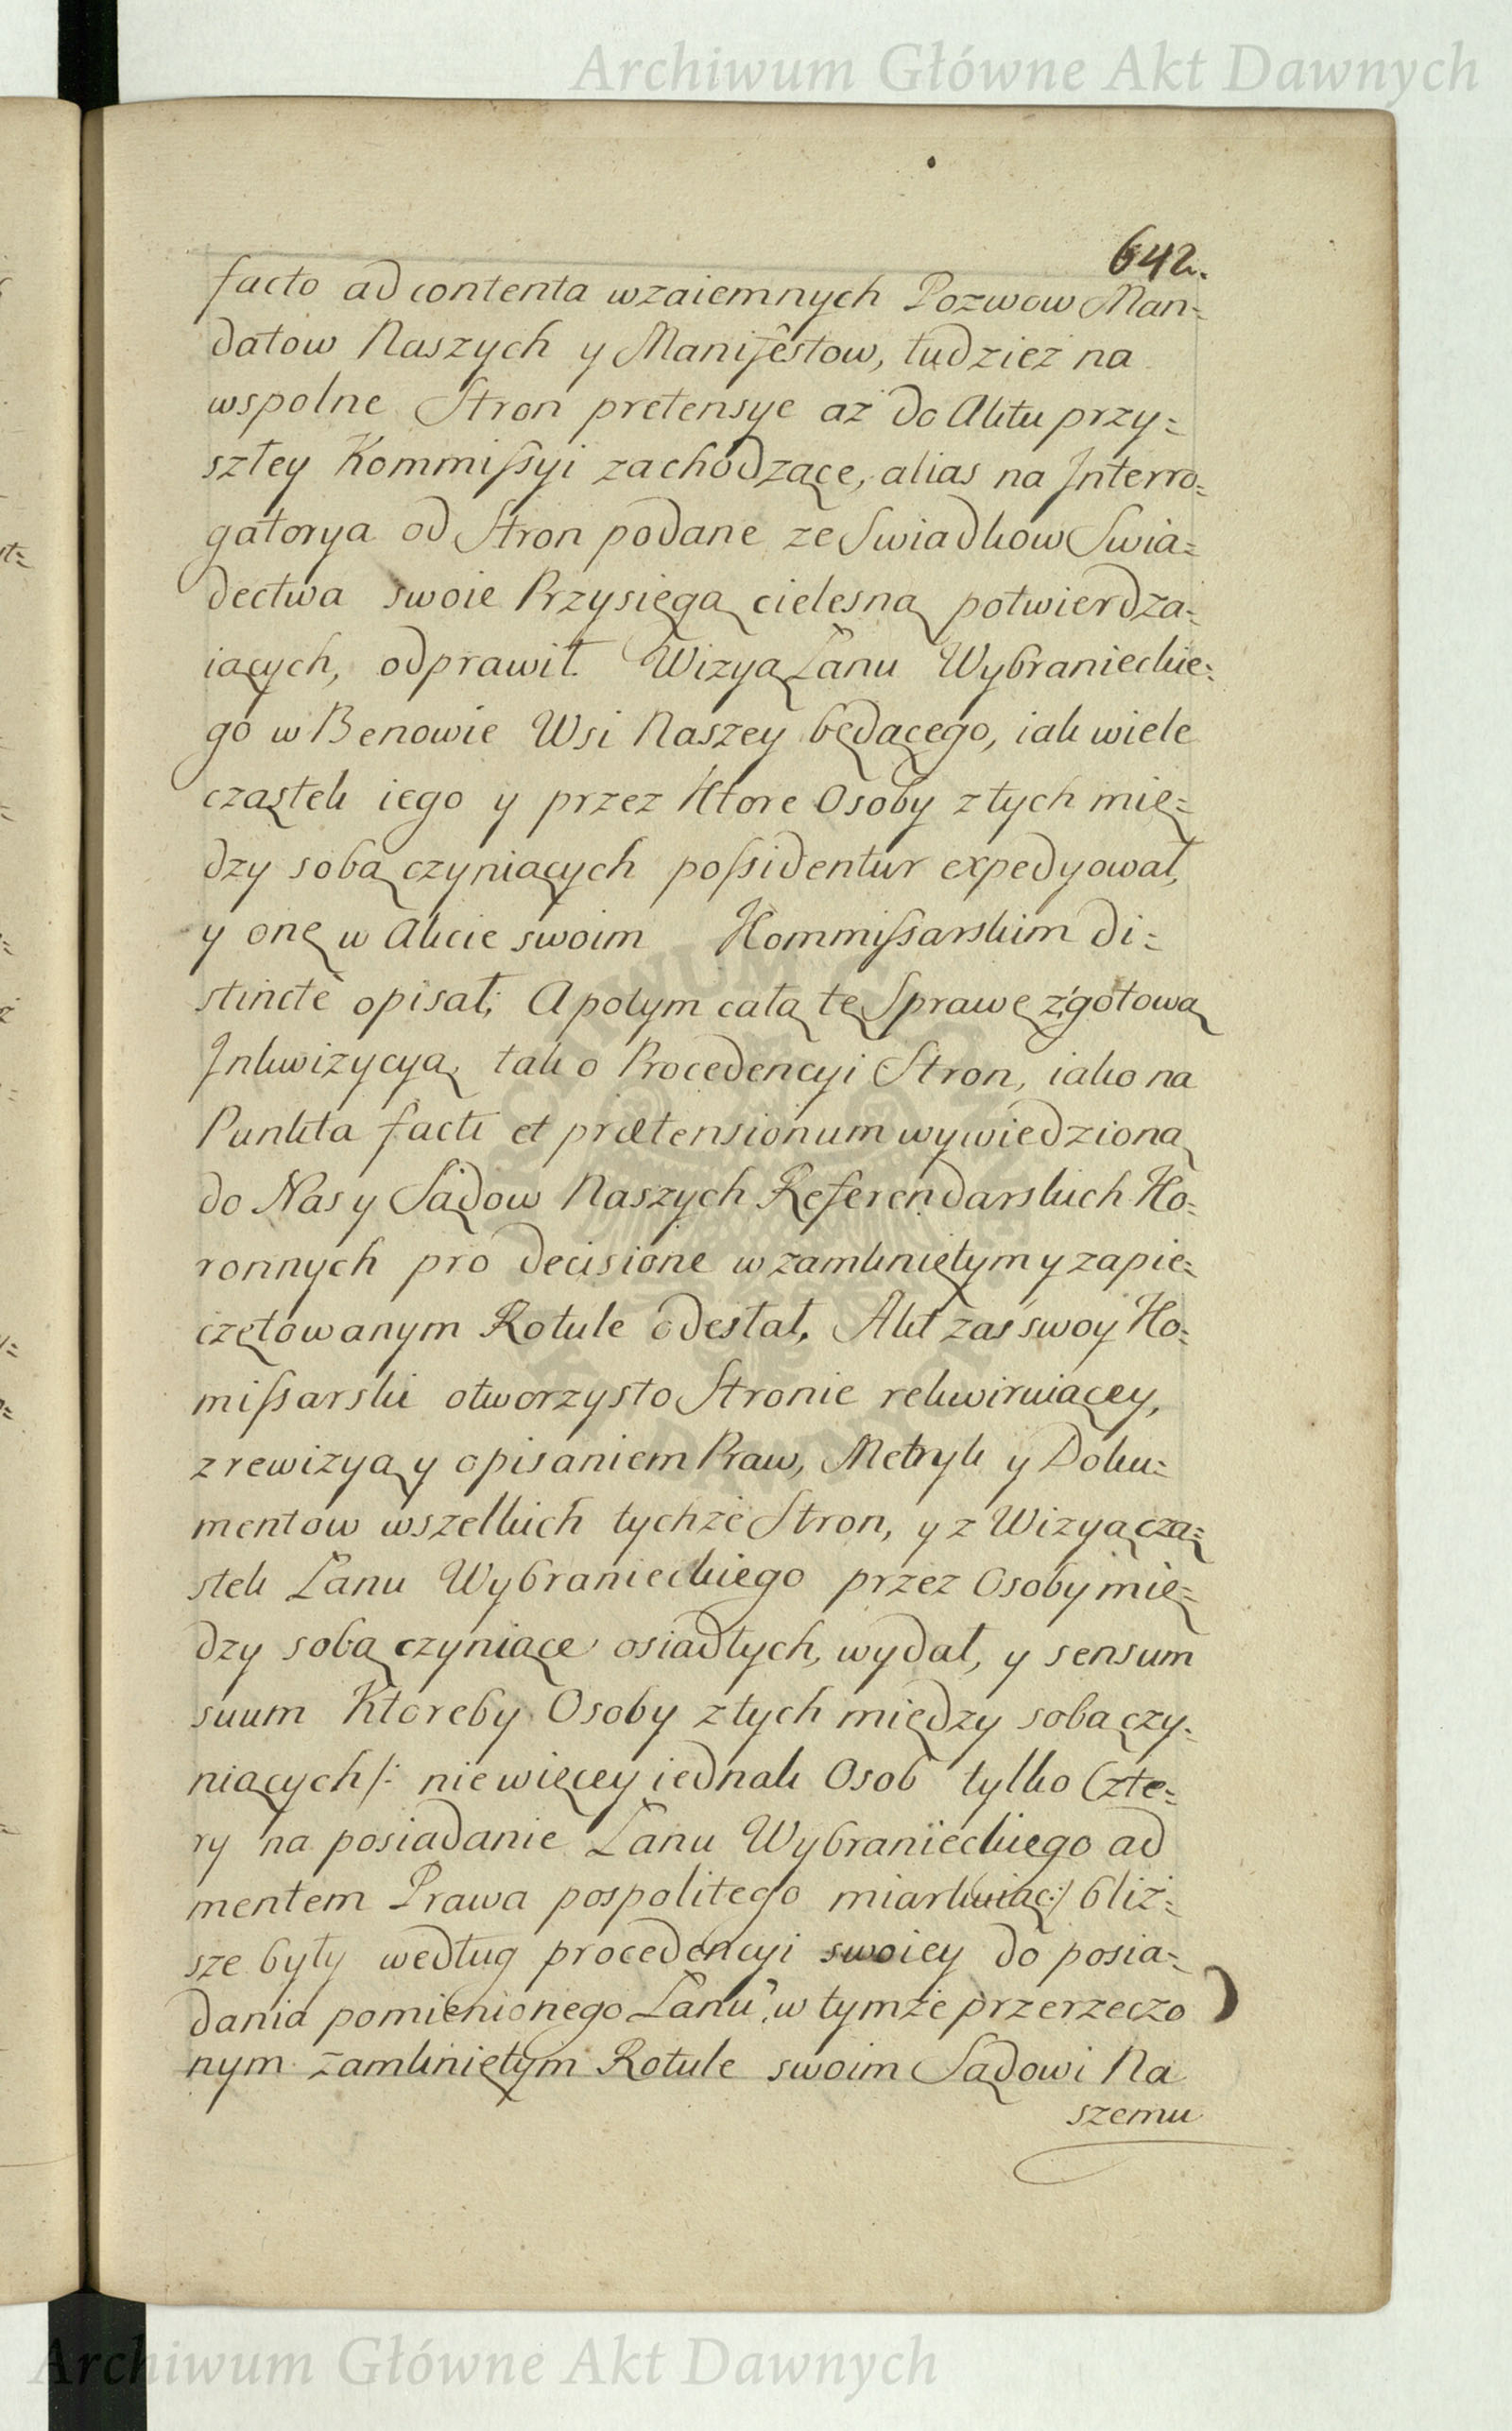 Archiwum Główne Akt Dawnych
642.
facto ad contenta wzaiemnych Pozwow Man=
datow Naszych y Manifestow, tudzież na
wspolne Stron pretensye aż do Aktu przy=
szłey Kommissyi zachodzące, alias na Interro=
gatorya od Stron podane ze Swiadkow Swia=
dectwa swoie Przysięgą cielesną potwierdza=
iących, odprawił. Wizyą Łanu Wybranieckie=
go w Benowie Wsi Naszey będącego, iak wiele
cząstek iego y przez Ktore Osoby z tych mię=
dzy sobą czyniących possidentur expedyował,
y onę w Akcie swoim Kommissarskim di=
stincte opisał; A potym całą tę Sprawę z gotową
Inkwizycyą, tak o Procedencyi Stron, iako na
Punkta facti et prætensionum wywiedzioną
do Nas y Sądow Naszych Referendarskich Ko=
ronnych pro decisione w zamkniętym y zapie=
czętowanym Rotule odesłał, Akt zaś swoy Ko=
missarski otworzysto Stronie rekwiruiącey,
z rewizyą y opisaniem Praw, Metryk y Doku=
mentow wszelkich tychże Stron, y z Wizyą czą=
stek Łanu Wybranieckiego przez Osoby mię=
dzy sobą czyniące osiadłych, wydał, y sensum
suum Ktoreby Osoby z tych między sobą czy=
niących /: nie więcey iednak Osob tylko Czte=
ry na posiadanie Łanu Wybranieckiego ad
mentem Prawa pospolitego miarkuiąc :/ bliż=
sze były według procedencyi swoiey do posia=
dania pomienionego Łanu, w tymże przerzeczo
nym zamkniętym Rotule swoim Sądowi Na
szemu
Archiwum Główne Akt Dawnych